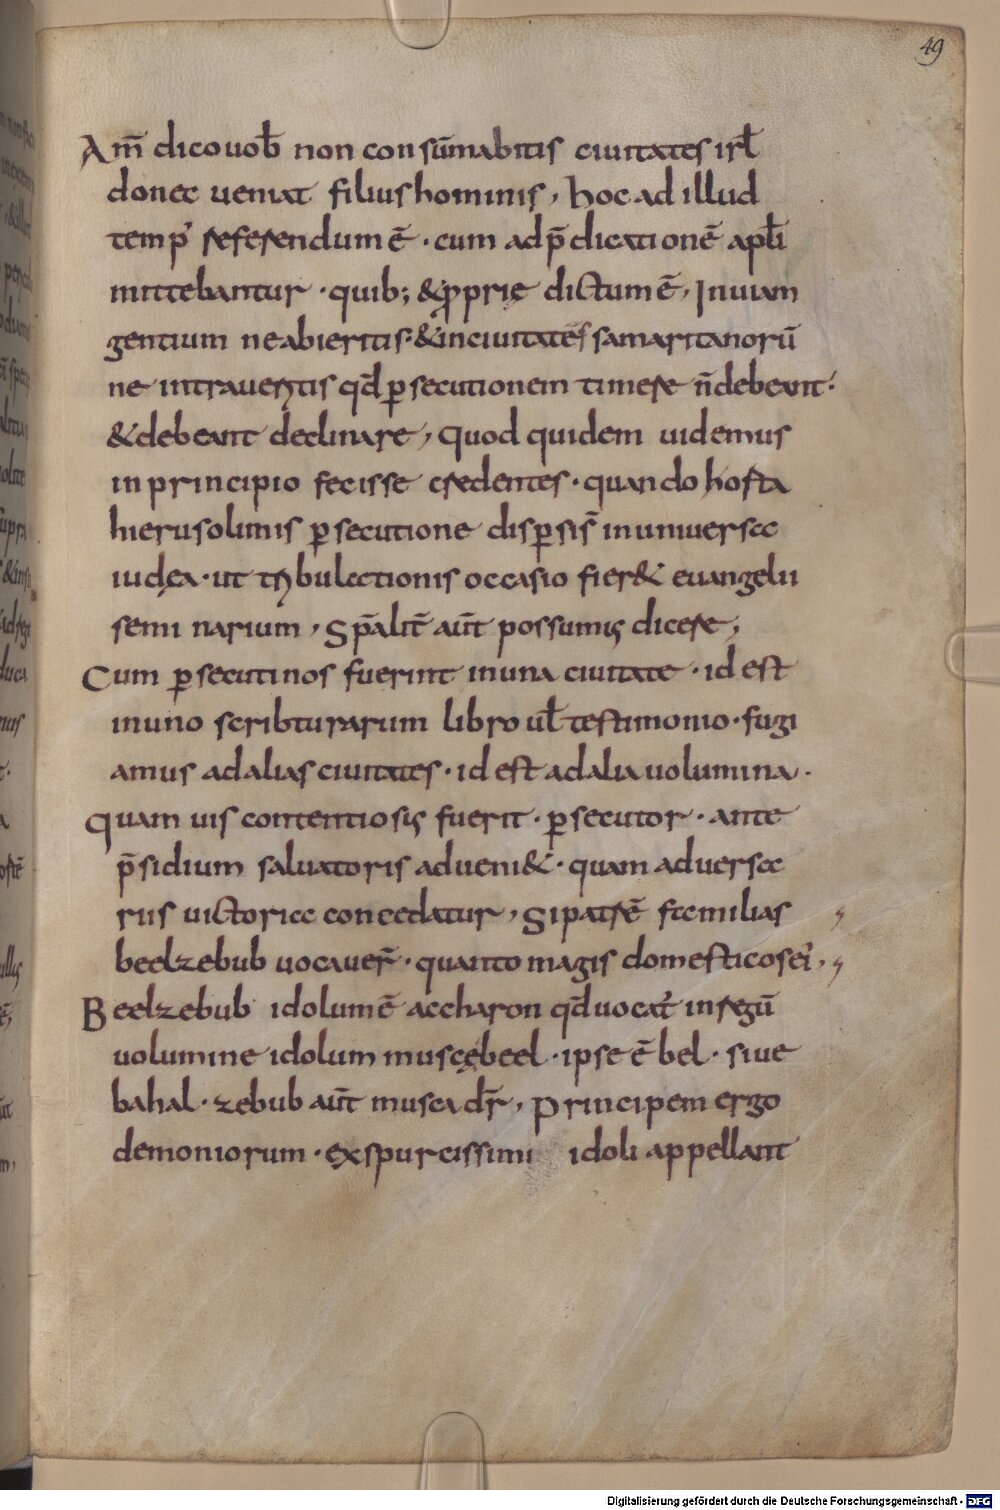 49
Am̅ dico uob̅ non consum̅mabitis ciuitates isrl̅
donec ueniat filius hominis, hoc ad illud
temp' referendum ē · cum ad p̄dicationē apl̅i
mittebantur · quib; & ꝓprię dictum ē, In uiam
gentium ne abieritis · & in ciuitates samaritanorū
ne intraueritis qd̅ ꝑsecutionem timere n̅ debeant ·
& debeant declinare, Quod quidem uidemus
in principio fecisse credentes · quando hosta
hierusolimis ꝑsecutione disꝑsis̅ in uniuersa
iudęa · ut tribulationis occasio fier& euangelii
seminarium, Sp̅alit̅ aut̅ possumus dicere;
Cum ꝑsecuti nos fuerint in una ciuitate · id est
in uno scribturarum libro ul̅ testimonio · fugi
amus ad alias ciuitates · id est ad alia uolumina ·
quam uis contentiosis fuerit · ꝑsecutor · ante
p̄sidium saluatoris adueni& · quam aduersa
riis uictoria concedatur, Si patrē familias
beelzebub uocauer̅ · quanto magis domesticos ei',
Beelzebub idolum ē accharon qd̅ uocat' in regū
uolumine idolum muscę beel · ipse ē bel · siue
bahal · zebub aut̅ musca dr̅, Principem ergo
demoniorum · ex spurcissimi idoli appellant
Digitalisierung gefördert durch die Deutsche Forschungsgemeinschaft - DFG